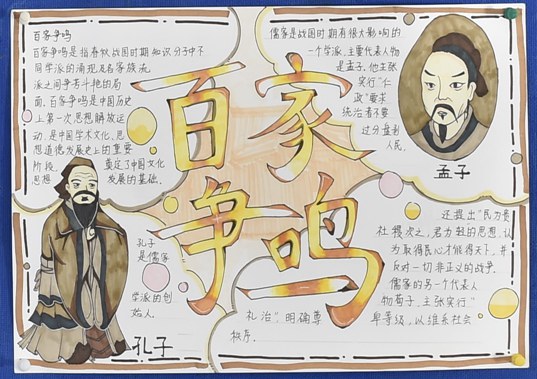 百家争鸣
百家争鸣是指春秋战国时期知识分子中不
同学派的涌现及各家族流
派之间争奇斗艳的局
面,百家争鸣是中国历史
上第一次思想解放运
动,是中国学术文化,思
想道德发展史上的重要
阶段, 奠定了中国文化
思想 发展的基础。
百家
争鸣
儒家是战国时期有很大影响的
一个学派,主要代表人物
是孟子,他主张
实行“仁
政”要求
统治者不要
过分盘剥
人民。
孟子
孔子
是儒家
学派的创
始人。
孔子
还提出“民为贵
社稷次之,君为轻的思想,认
为取得民心才能得天下,并
反对一切非正义的战争.
儒家的另一个代表人
物荀子,主张实行“
礼治”,明确尊
卑等级,以维系社会
秩序.